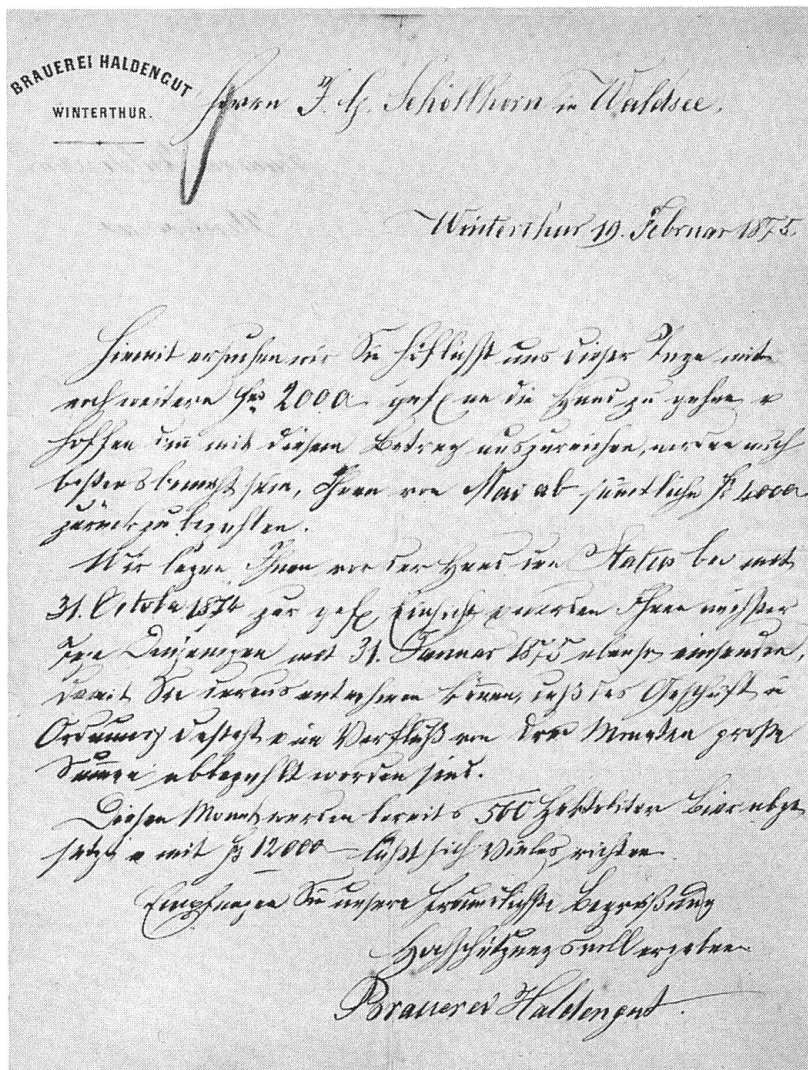 BRAUEREI HALDENGUT
WINTERTHUR.
Herrn J. G. Schöllhorn in Waldsee.
Winterthur 19. Februar 1875.
Hiemit ersuchen wir Sie höflichst uns dieser Tage mit
noch weitere frs 2000 gefl. an die Hand zu gehen &
hoffen dann mit diesem Betrag auszureichen, werden auch
bestens bemüht sein, Ihnen von Mai ab sämtliche fs 4000
zurückzubezahlen.
Wir legen Ihnen vor der Hand den Status bei mit
31. Octobr 1874 zur gefl. Einsicht & werden Ihnen nächster
Tage Denjenigen mit 31. Januar 1875 ebenso einsenden,
damit Sie daraus entnehmen können, daß das Geschäft in
Ordnung besteht & im Verfluß von drei Monaten große
Summen abbezahlt worden sind.
Diesen Monat werden bereits 500 Hektoliter Bier abge
setzt & mit fs 12000 läßt sich Vieles richten
Empfangen Sie unsere freundlichste Begrüßung
Hochschätzungsvoll ergeben
Brauerei Haldengut.